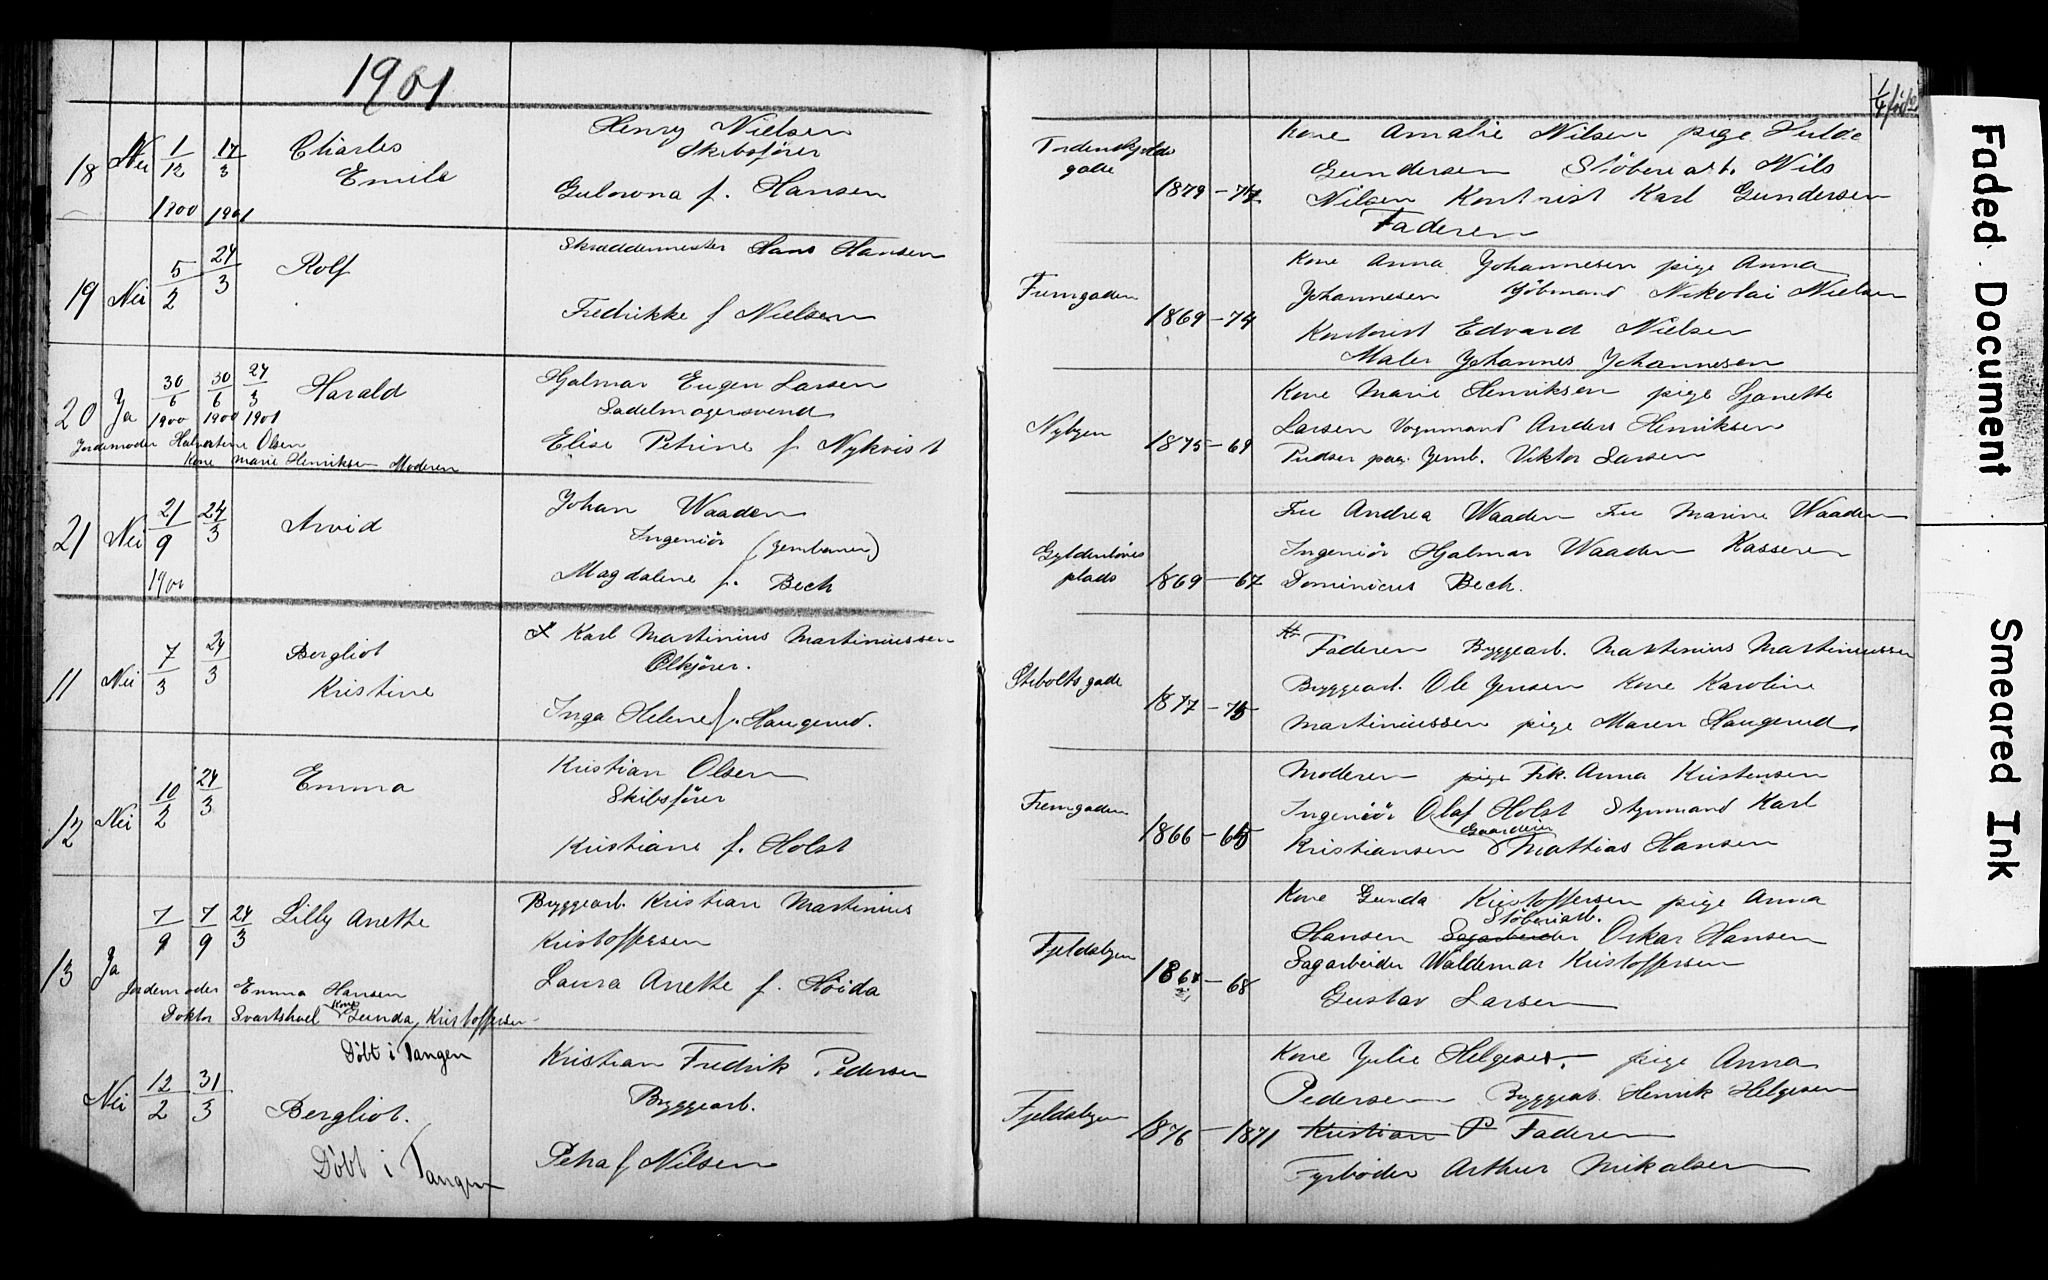 1901
18 Nei 1/12 1900 17/3 1901
Charles
Emil
Henry Nielsen
Skibsfører
Gulowna f. Hansen
Tordenskjolds
gade
1879 - 77
Kone Amalie Nilsen pige Hulda
Gundersen Støberiarb. Nils
Nilsen Kontorist Karl Gundersen
Faderen
19 Nei 5/2 24/3
Rolf
Skræddermester Hans Hansen
Fredrikke f Nielsen
Fremgaden
1869 - 74
Kone Anna Johannesen pige Anna
Johannesen Kjøbmand Nikolai Nielsen
Kontorist Edvard Nielsen
Maler Johannes Johannesen
20 Ja 30/6 1900 30/6 1900 24/3 1901
Harald
Jordemoder Halvartine Olsen
Kone Marie Henriksen Moderen
Hjalmar Eugen Larsen
Sadelmagersvend
Elise Petrine f Nykvist
Nybyen
1875 - 69
Kone Marie Henriksen pige Sjanette
Larsen Vognmand Anders Henriksen
Pudser paa Jernb. Viktor Larsen
21 Nei 21/9 1900 24/3
Arvid
Johan Waaden
Ingeniør (Jernbanen)
Magdalene f. Bech
Gyldenløves
plads
1869 - 67
Fru Andrea Waaden Fru Marine Waaden
Ingeniør Hjalmar Waaden Kasserer
Dominicus Bech.
11 Nei 7/3 24/3
Bergliot
Kristine
Karl Martinius Martiniussen
Ølkjører.
Inga Helene f. Haugerud.
Stiboltsgade
1877 - 75
Faderen Byggearb. Martinius Martiniussen
Byggearb. Ole Jensen Kone Karoline
Martiniussen pige Maren Haugerud
12 Nei 10/2 24/3
Emma
Kristian Olsen
Skibsfører
Kristiane f. Holst
Fremgaden
1866 - 65
Moderen pige Frk. Anna Kristensen
Ingeniør Olaf Holst Styrmand Karl
Kristiansen Gaardeier Mattias Hansen
13 Ja 7/9 7/9 24/3
Lilly Anette
Jordemoder Emma Hansen
Doktor Svartshoel Kone Gunda Kristoffersen
Byggearb. Kristian Martinius
Kristoffersen
Laura Anette f. Høida
Fjeldsbyen
1868 - 68
Kone Gunda Kristoffersen pige Anna
Hansen Sagarbeider Støberiarb. Oskar Hansen
Sagarbeider Waldemar Kristoffersen
Gustav Larsen
Døbt i Tangen
Nei 12/2 31/3
Bergliot.
Døbt i Tangen
Kristian Fredrik Pedersen
Byggearb.
Petra f Nilsen
Fjeldsbyen
1876 - 1871
Kone Julie Helgesen. pige Anna
Pedersen Byggearb. Henrik Helgesen
Kristian P Faderen
Fyrbøder Arthur Mikalsen
Faded Document
Smeared Ink